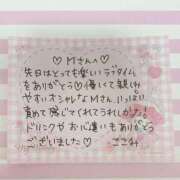 ♡ Mさんへ ♡
先日はとっても楽しいラブタイム
をありがとう♡優しくて親しみ
やすいオシャレなMさん。いっぱい
責めて感じてくれてうれしかった!
ドリンクやお心遣いもありがとう
ございました♡ ここみ